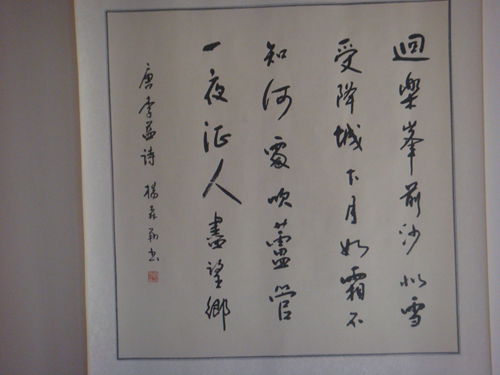 迴樂峯前沙似雪
受降城下月如霜不
知何處吹蘆管
一夜征人盡望鄉
唐李益詩 楊 书